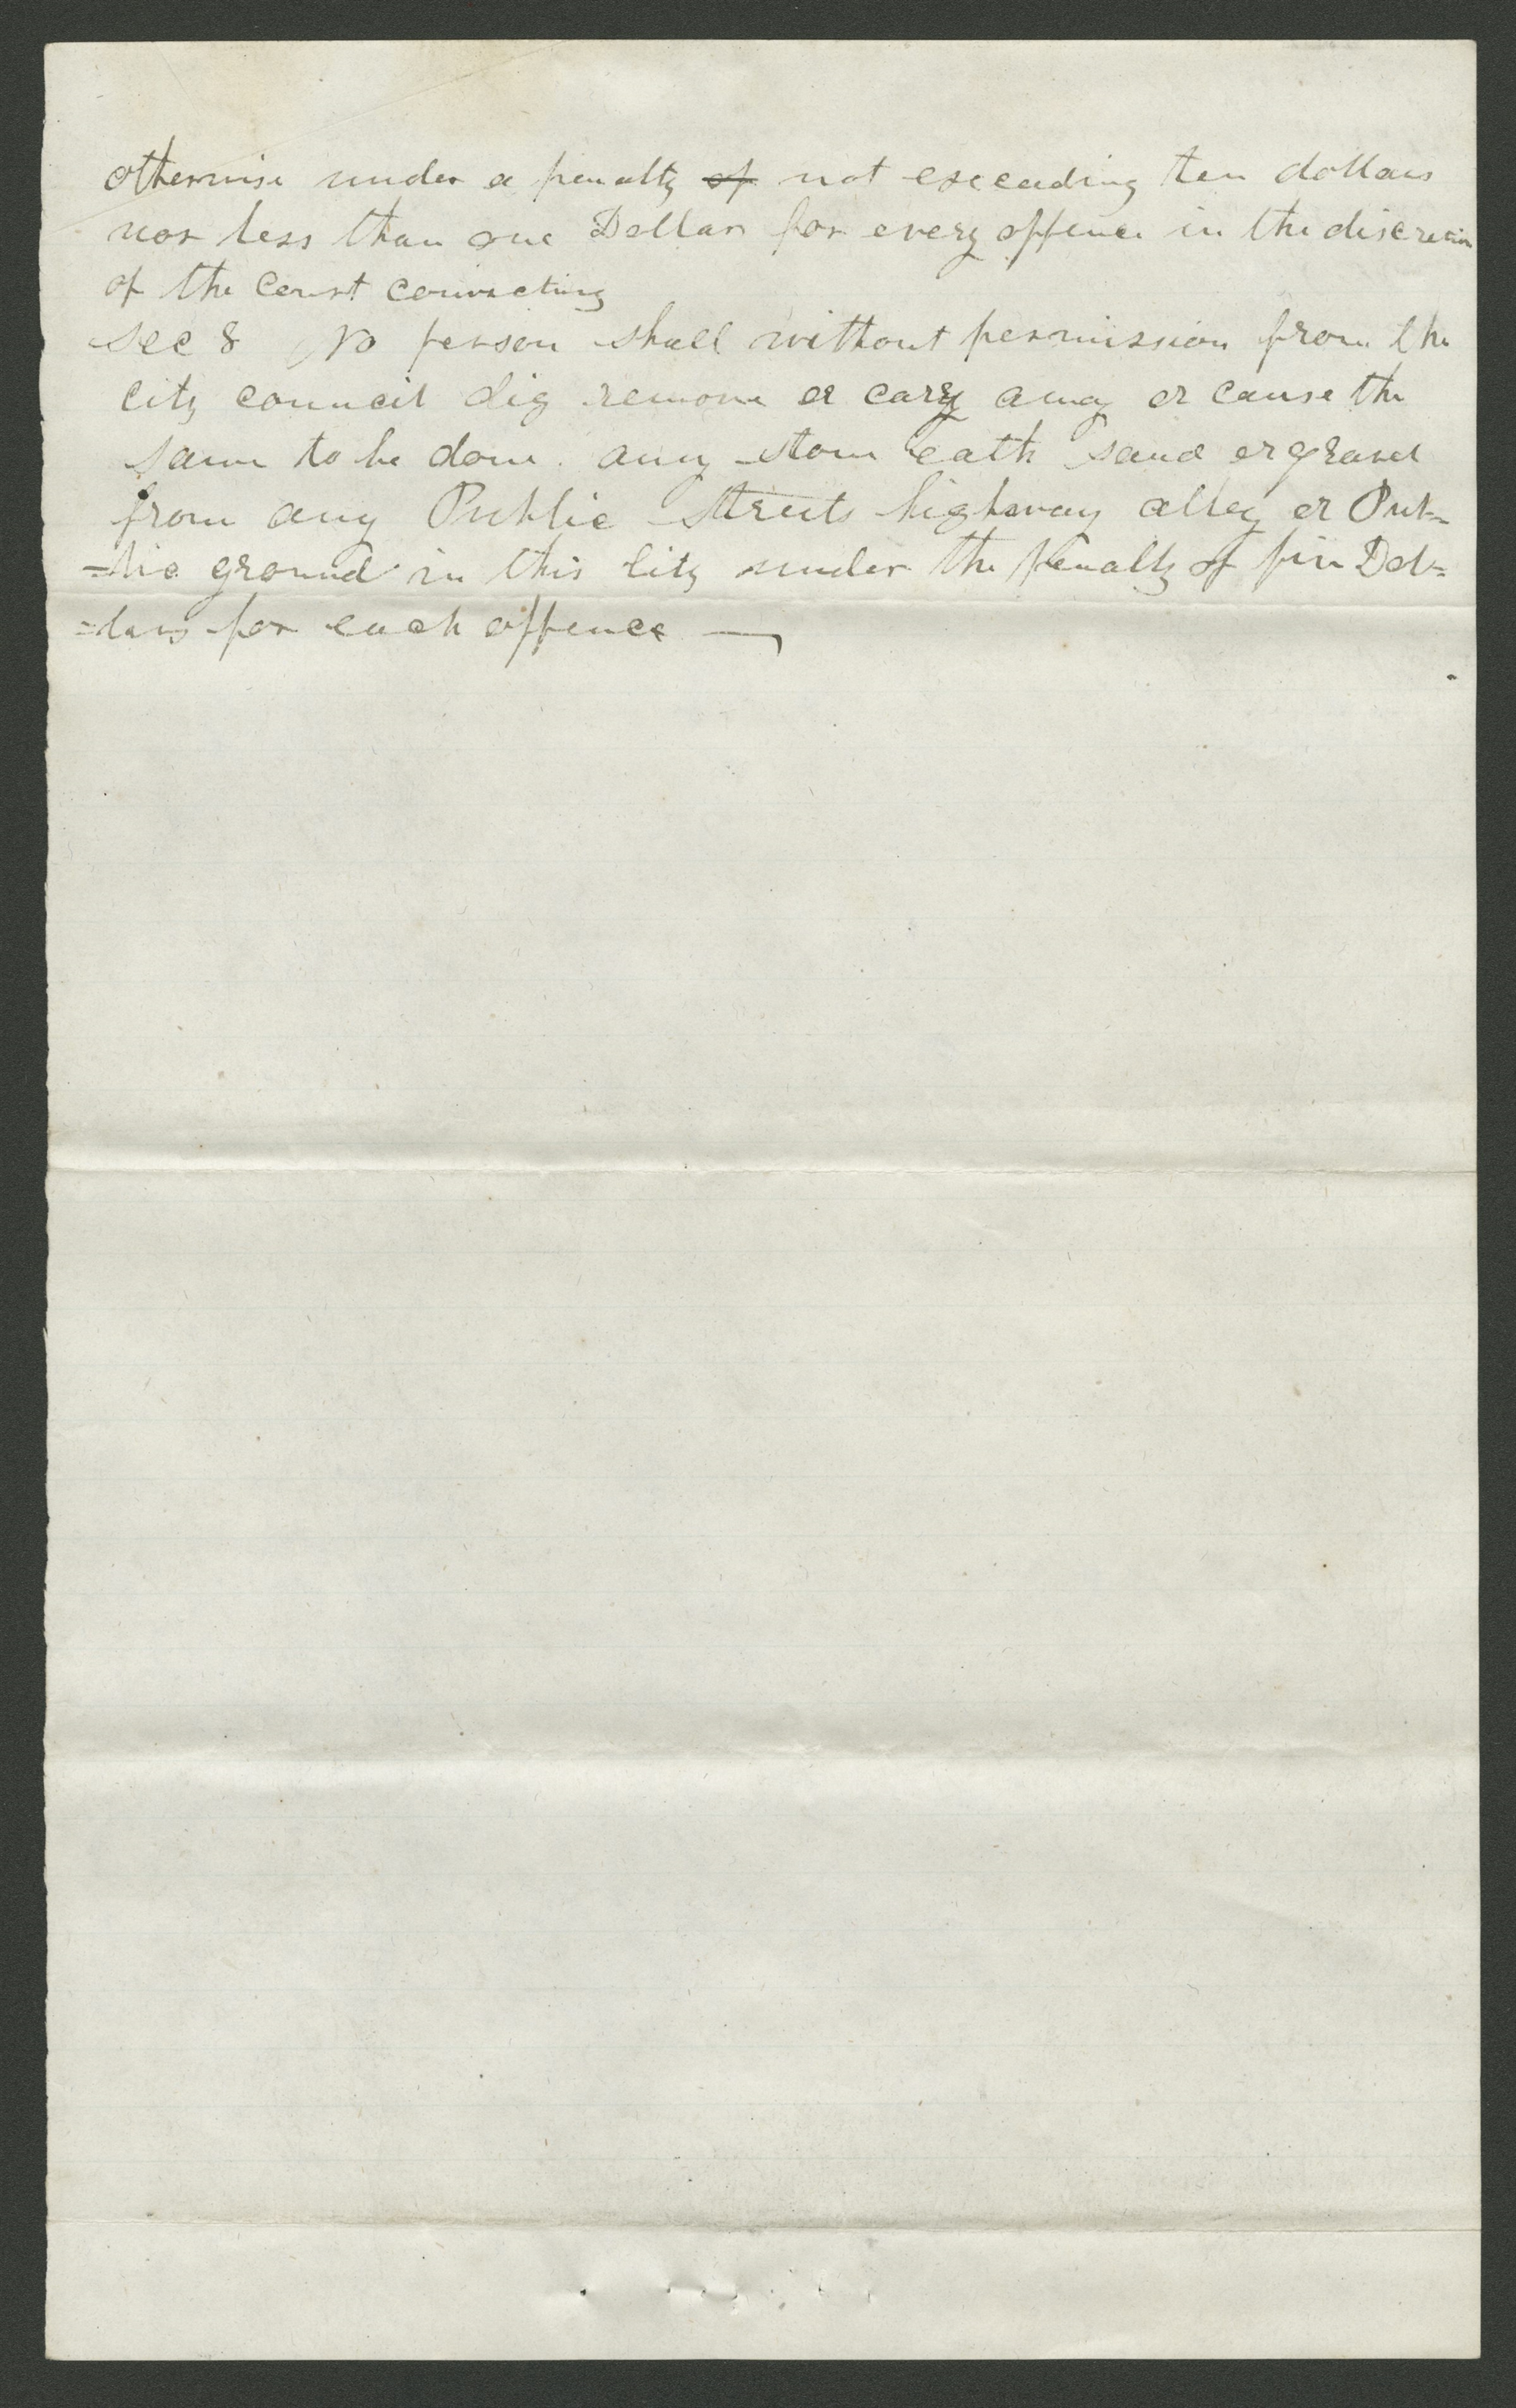 otherwise under a penalty of not exceeding ten dollars
nor less than one Dollar for every offence in the discretion
of the Court convicting
Sec 8 No person shall without permission from the
City council dig remove or cary away or cause the
same to be done. any stone eath sand or gravel
from any Public Streets highway alley or Pub=
=lic ground in this City under the penalty of five Dol=
=lars for each offence —